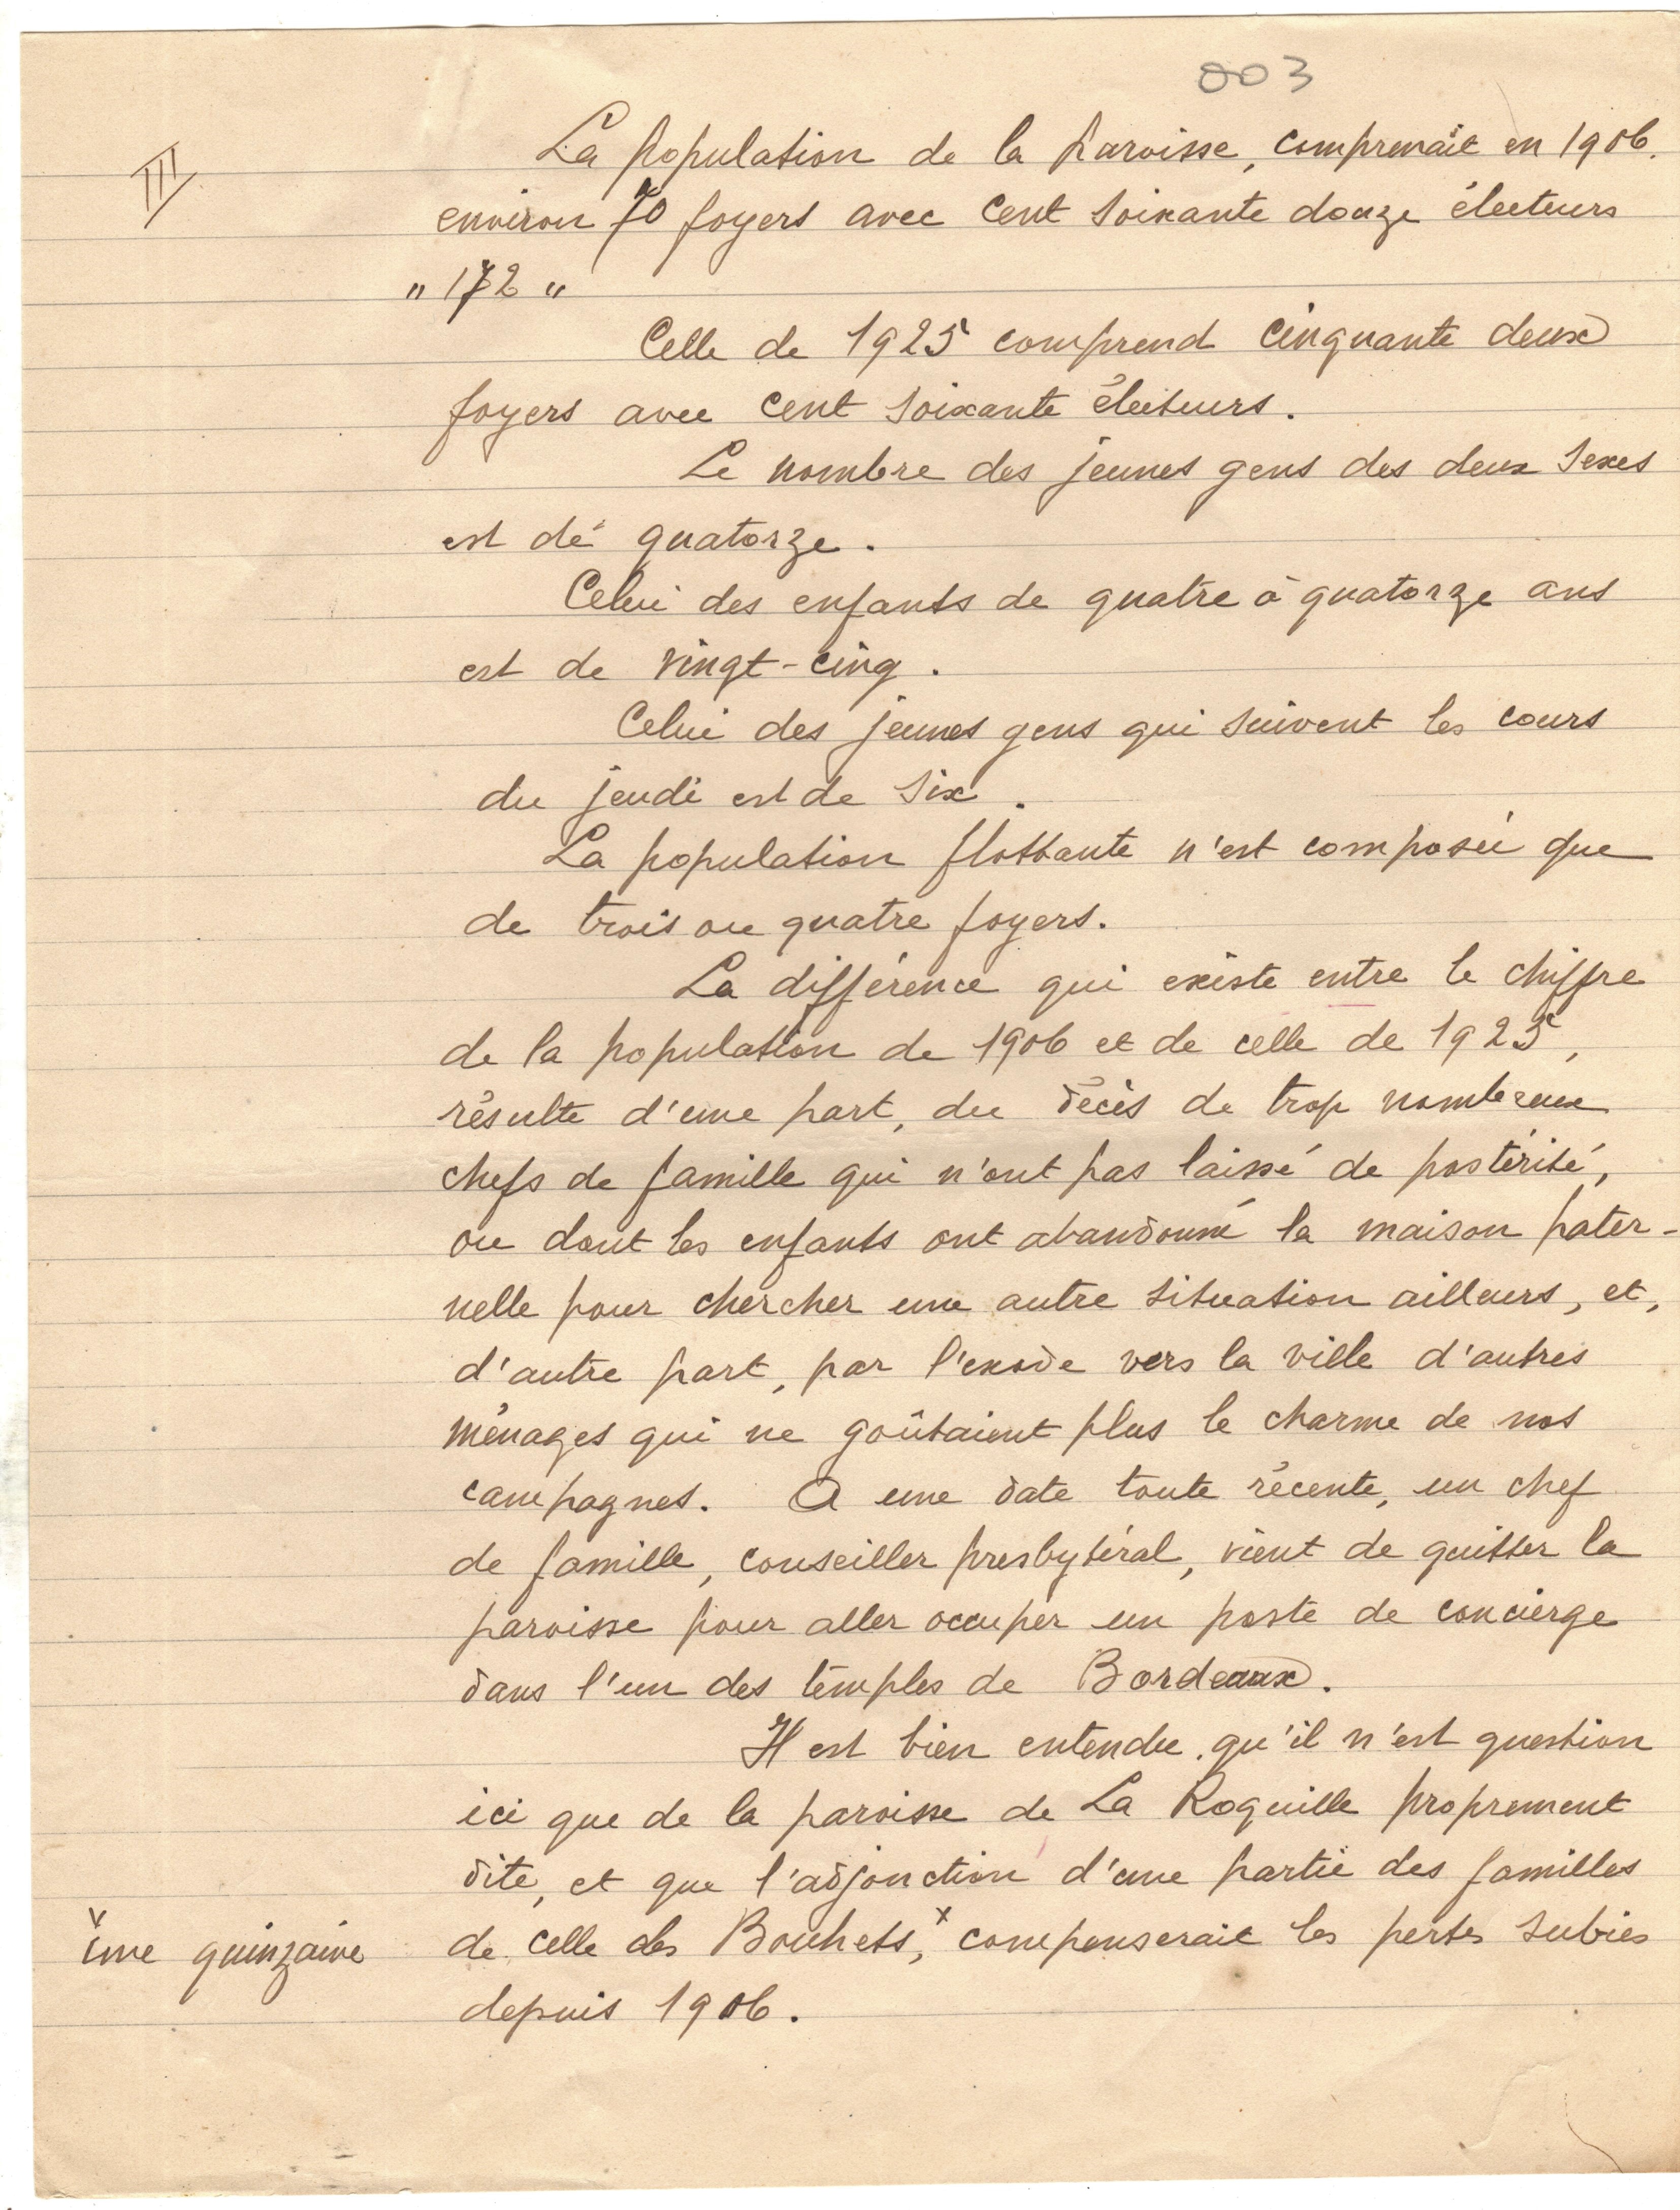 003
III
La population de la Paroisse, comprenait en 1906.
environ 70 foyers avec cent soixante douze électeurs
" 172 "
Celle de 1925 comprend cinquante deux
foyers avec cent soixante électeurs.
Le nombre des jeunes gens des deux sexes
est de quatorze.
Celui des enfants de quatre à quatorze ans
est de vingt-cinq.
Celui des jeunes gens qui suivent les cours
du jeudi est de six.
La population flottante n'est composée que
de trois ou quatre foyers.
La différence qui existe entre le chiffre
de la population de 1906 et de celle de 1925,
résulte d'une part, du décès de trop nombreux
chefs de famille qui n'ont pas laissé de postérité,
ou dont les enfants ont abandonné la maison pater-
nelle pour chercher une autre situation ailleurs, et,
d'autre part, par l'exode vers la ville d'autres
ménages qui ne goûtaient plus le charme de nos
campagnes. A une date toute récente, un chef
de famille, conseiller presbytéral, vient de quitter la
paroisse pour aller occuper un poste de concierge
dans l'un des temples de Bordeaux.
Il est bien entendu qu'il n'est question
ici que de la paroisse de La Roquille proprement
dite, et que l'adjonction d'une partie des familles
de celle des Bouhets,x compenserait les pertes subies
x
une quinzaine
depuis 1906.